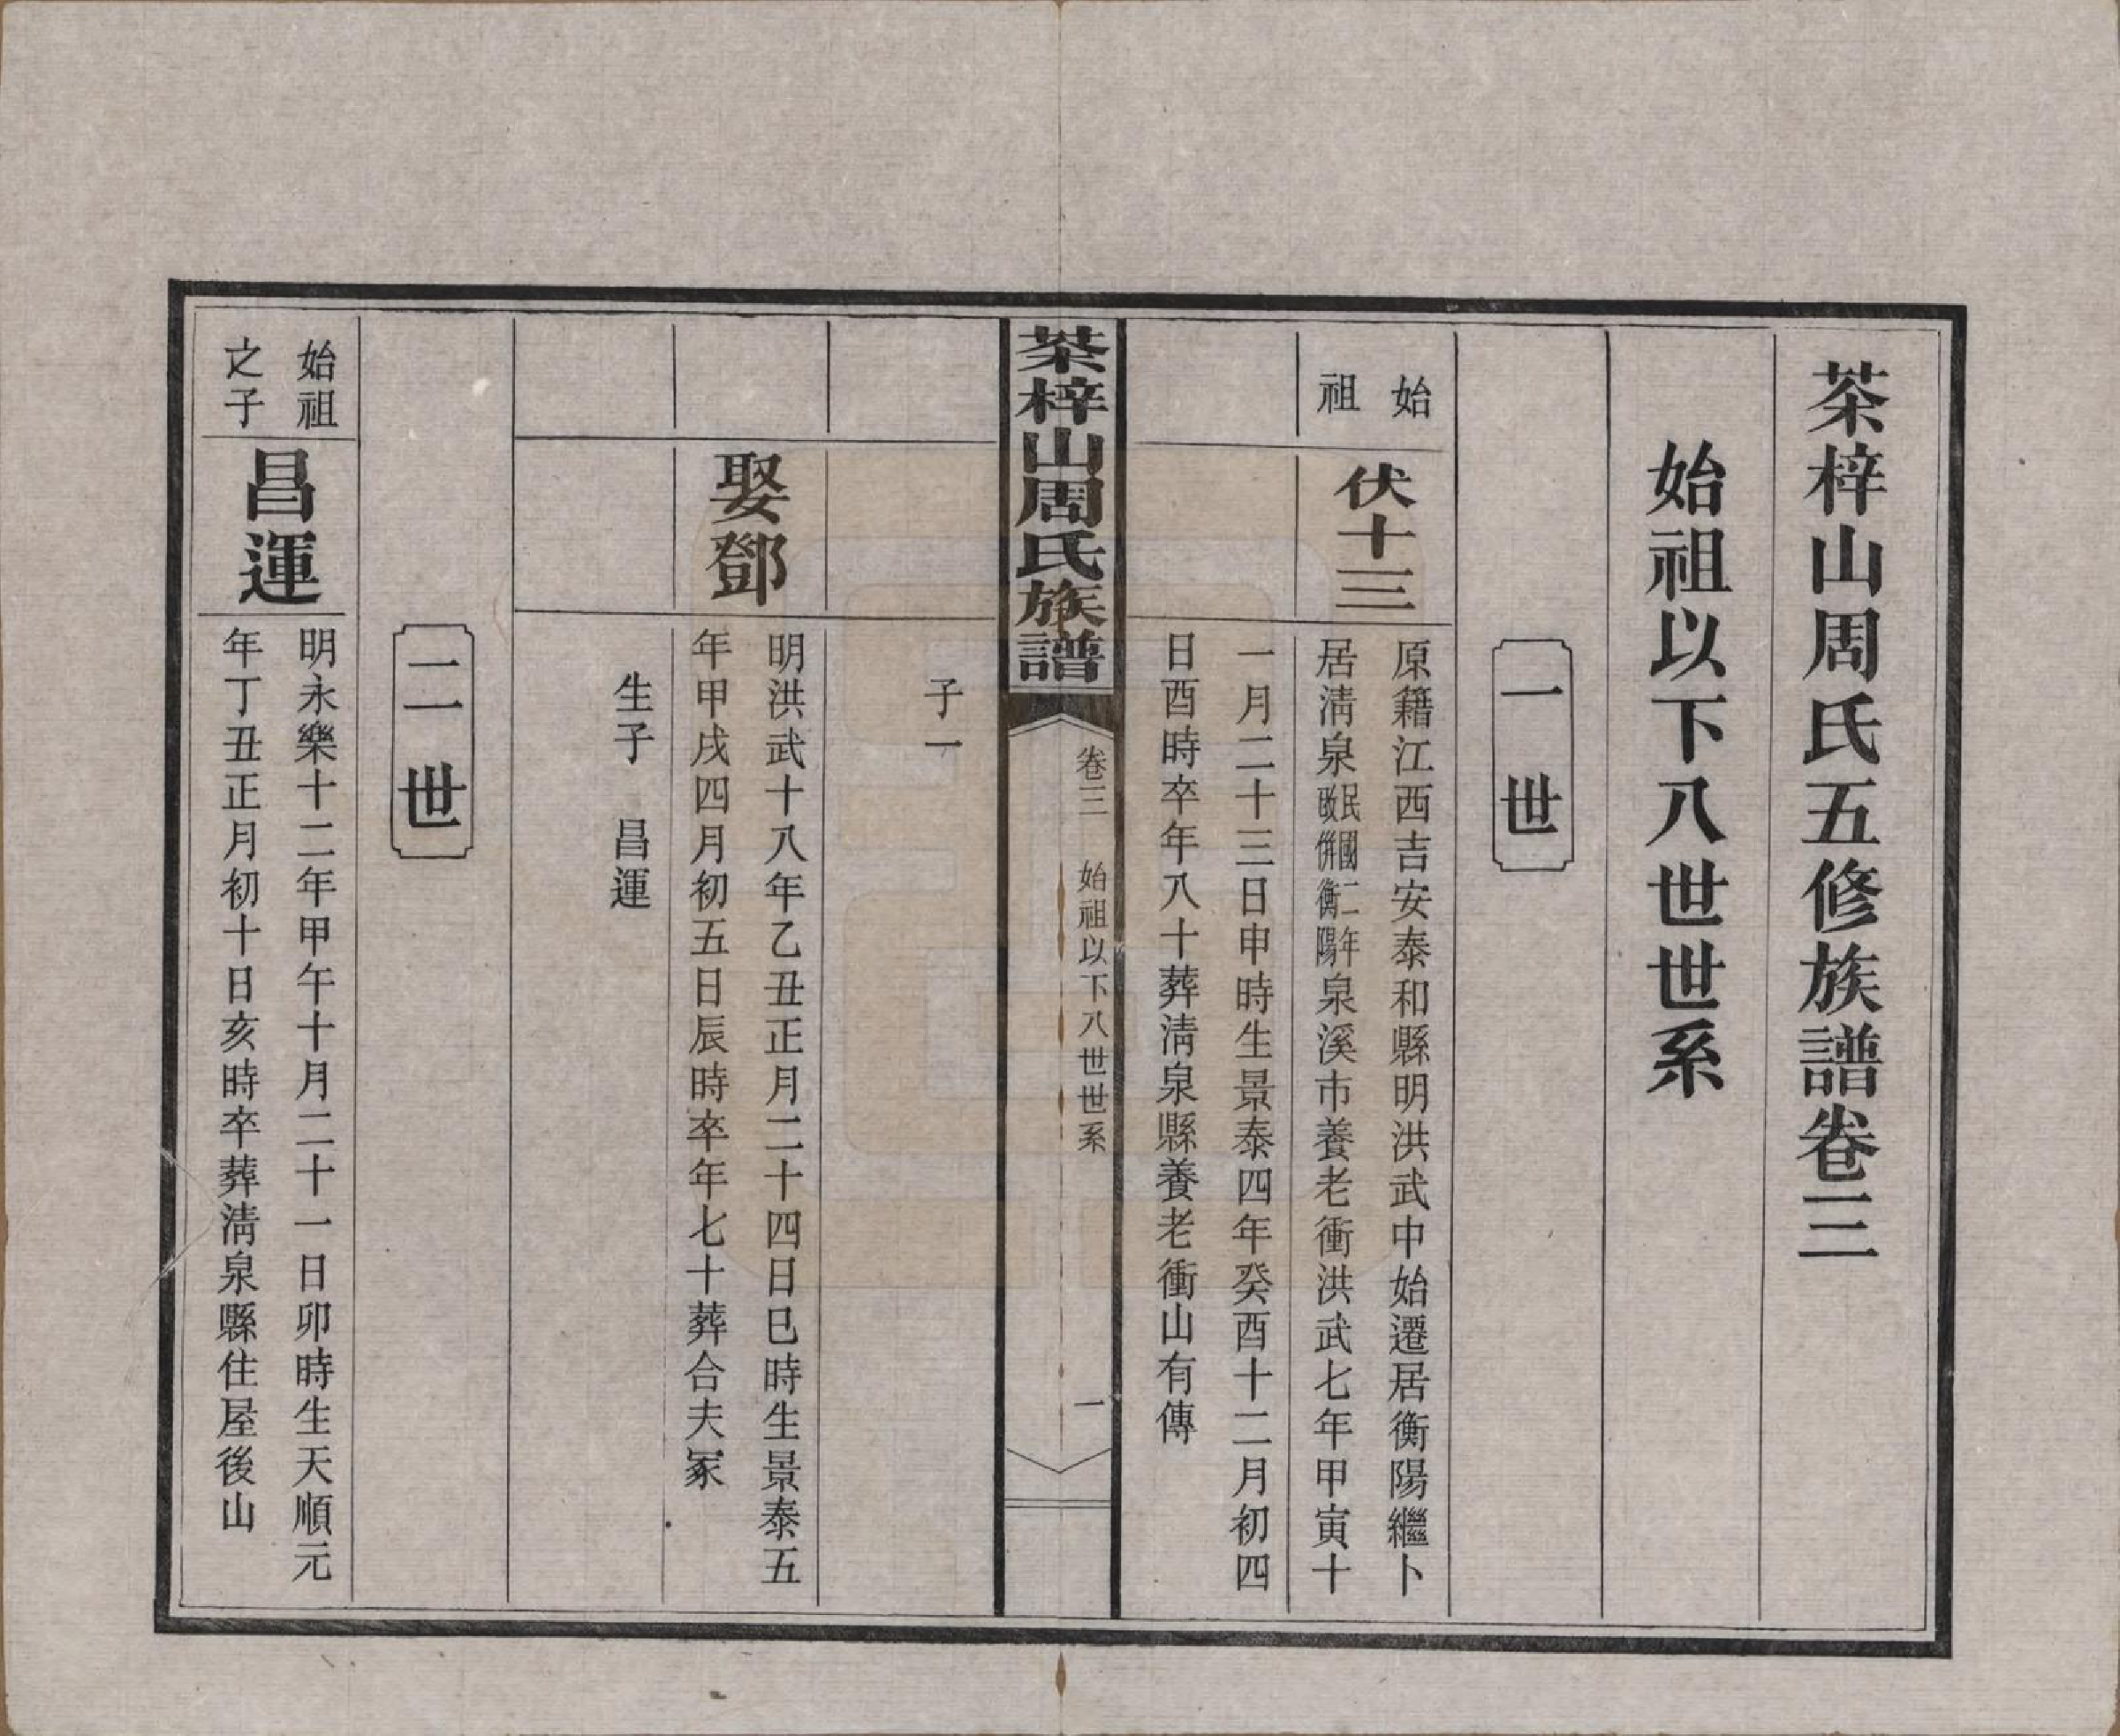 茶梓山周氏五修族譜卷三
始祖以下八世世系
一世
始
祖
伏十三
原籍江西吉安泰和縣明洪武中始遷居衡陽繼卜
居淸泉民國二年改併衡陽泉溪市養老衝洪武七年甲寅十
一月二十三日申時生景泰四年癸酉十二月初四
日酉時卒年八十葬淸泉縣養老衝山有傳
茶梓山周氏族譜
卷三 始祖以下八世世系
一
子一
娶鄧
明洪武十八年乙丑正月二十四日巳時生景泰五
年甲戌四月初五日辰時卒年七十葬合夫冢
生子 昌運
二世
始祖
之子
昌運
明永樂十二年甲午十月二十一日卯時生天順元
年丁丑正月初十日亥時卒葬淸泉縣住屋後山